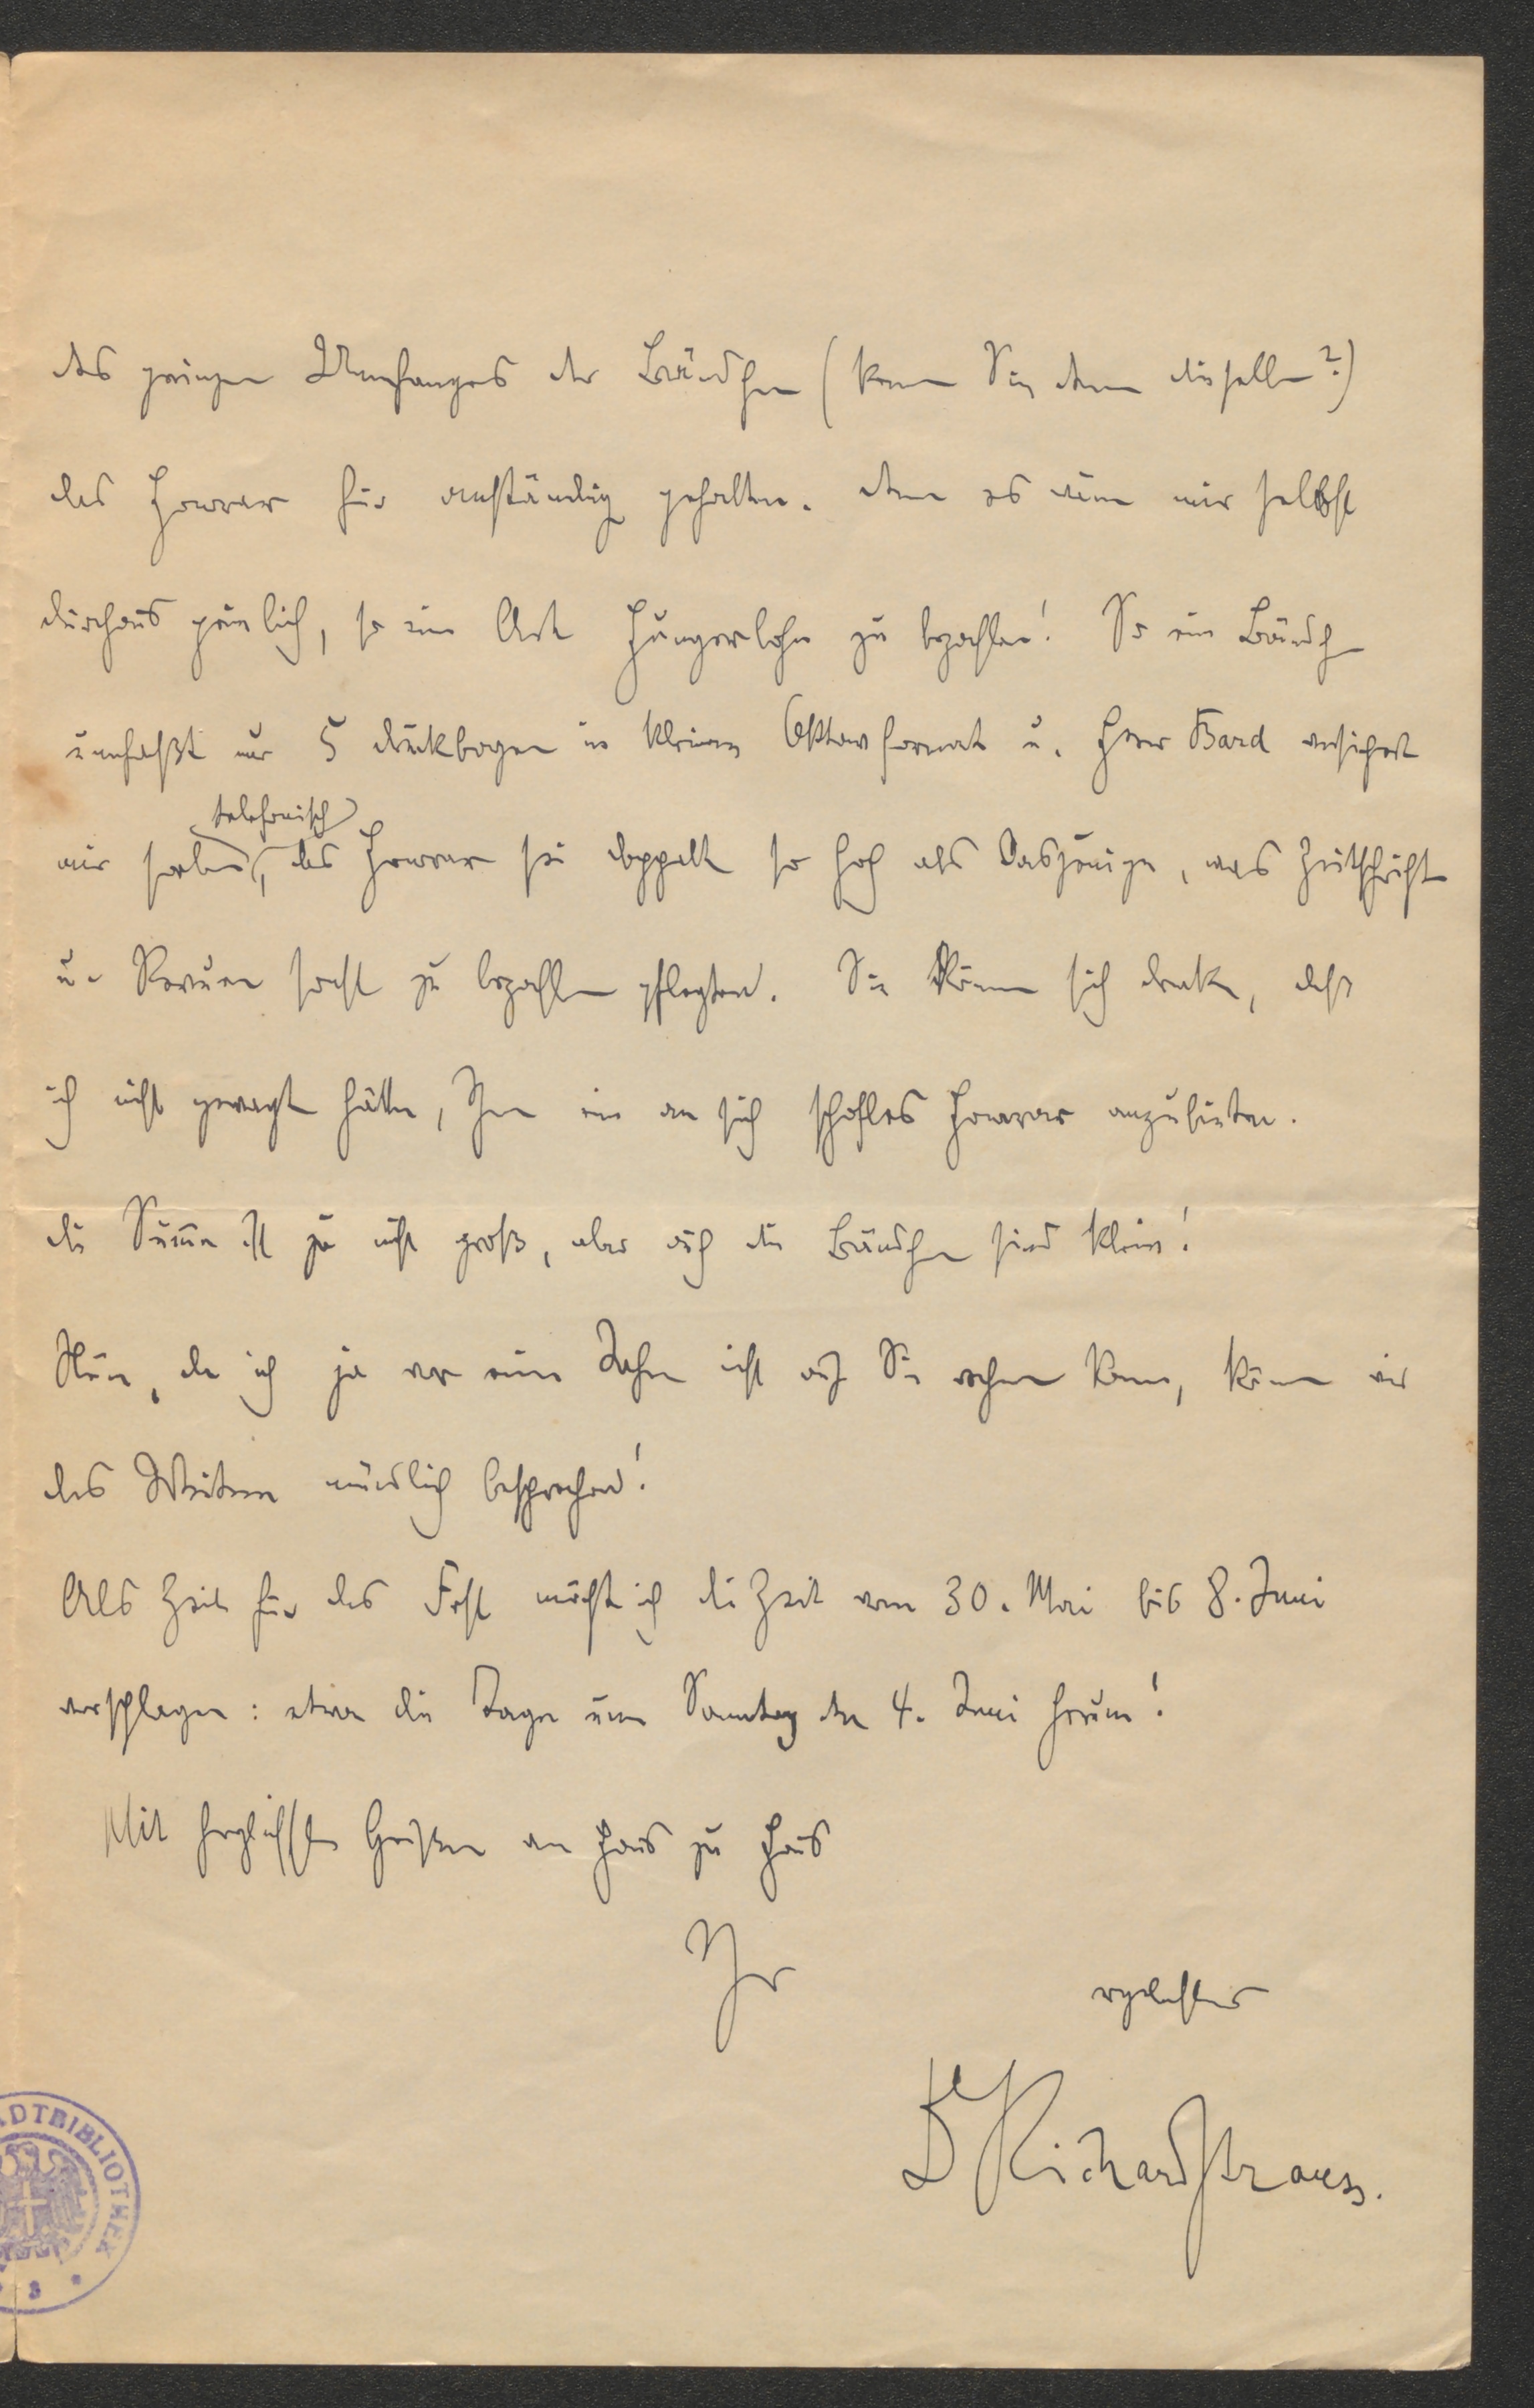 des geringen Umfanges der Bändchen (kennen Sie denn dieselben?)
das Honorar für anständig gehalten. denn es wäre mir selbst
durchaus peinlich, so eine Art Hungerlohn zu bezahlen! So ein Bändchen
umfaßt nur 5 Druckbogen in kleinem Oktavformat u. Herr Bard versichert
telefonisch
mir soeben, das Honorar sei doppelt so hoch als Dasjenige, was Zeitschriften
u. Revuen sonst zu bezahlen pflegten. Sie können sich denken, daß
ich nicht gewagt hätte, Ihnen ein an sich schofles Honorar anzubieten.
die Summe ist ja nicht groß, aber auch die Bändchen sind klein!
Nun, da ich ja vor einem Jahre nicht auf Sie rechnen kann, können wir
das Weitere mündlich besprechen!
Als Zeit für das Fest möchte ich die Zeit vom 30. Mai bis 8. Juni
vorschlagen: etwa die Tage um Sonntag den 4. Juni herum!
Mit herzlichsten Grüßen von Haus zu Haus
Ihr
ergebenster
Dr Richard Strauss.
ADTBIBLIOTHEK